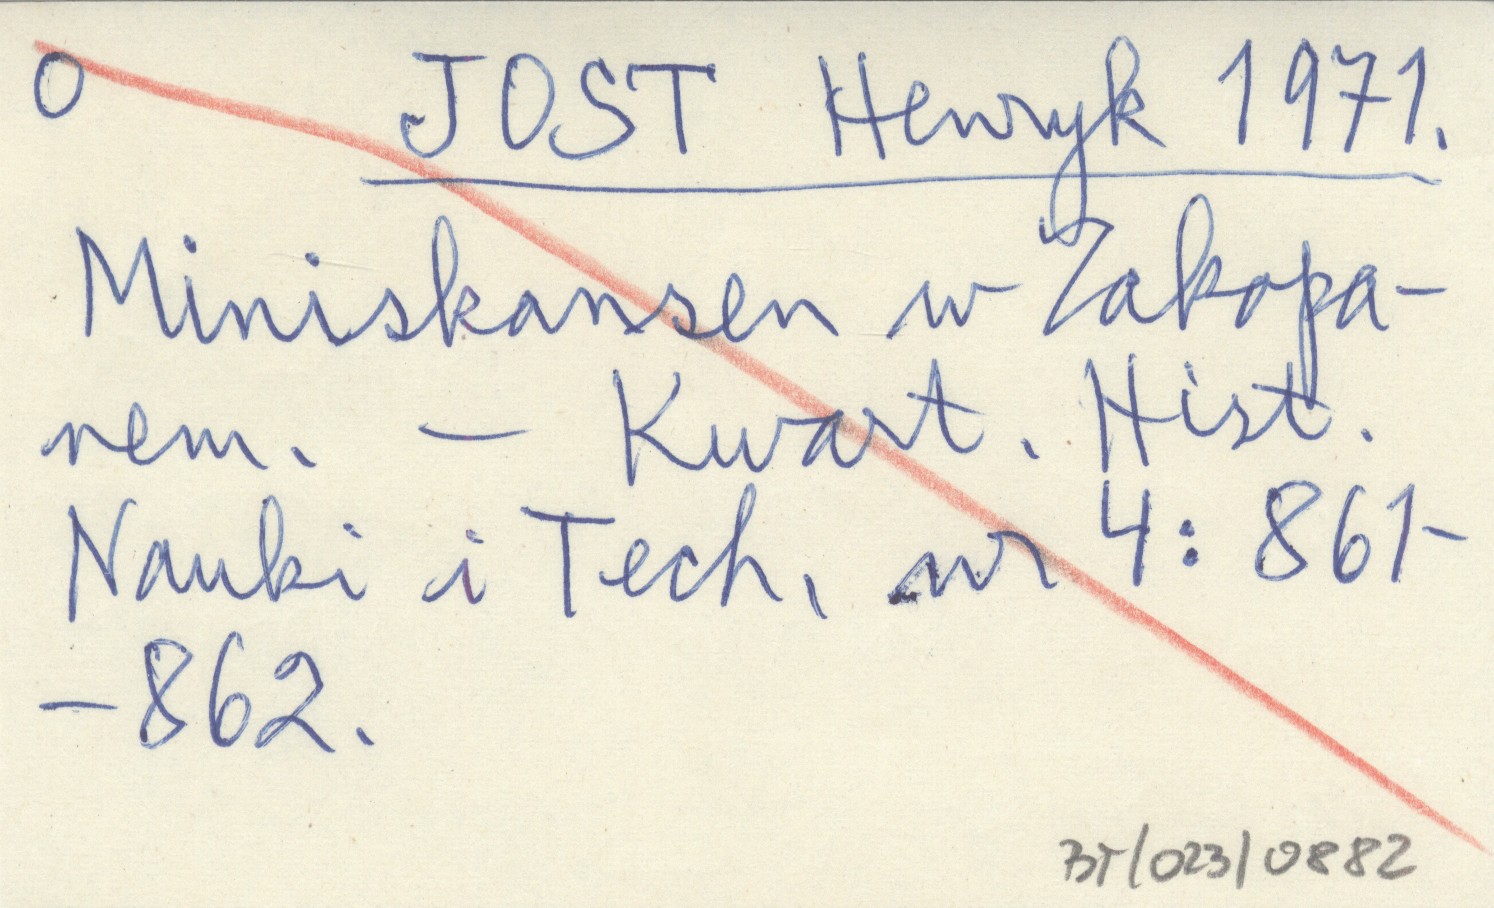 O JOST Henryk 1971.
Miniskansen w Zakopa-
nem. – Kwart. Hist.
Nauki i Tech., nr 4: 861-
-862.
BT/023/0882